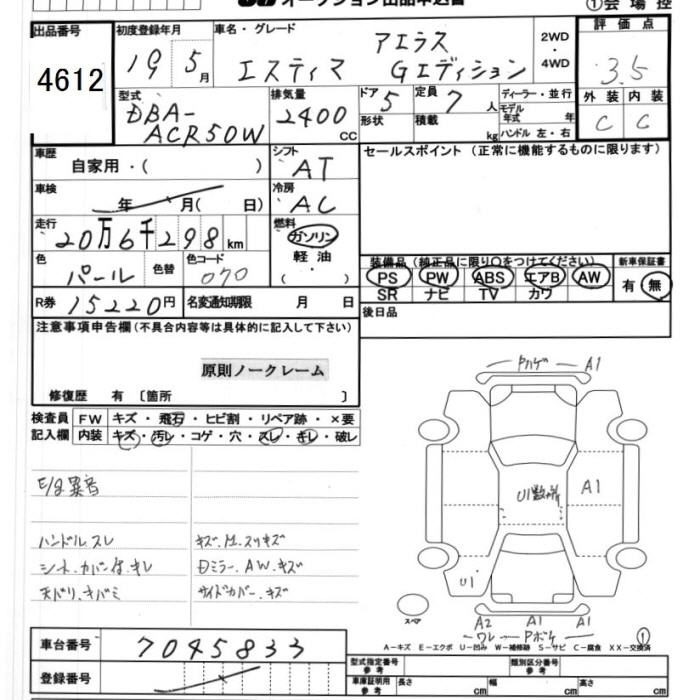 オークション出品申込書
①会場控
出品番号
4612
初度登録年月
19 5月
車名・グレード
アエラス
エスティマ Gエディション
2WD
・
4WD
評価点
3.5
外装 内装
C C
型式
DBA-
ACR50W
排気量
2400
CC
ドア 5
形状
定員 7人
積載 kg
ディーラー・並行
モデル
年式 年
ハンドル 左・右
車歴
自家用・( )
シフト
AT
セールスポイント (正常に機能するものに限ります)
車検
年 月( 日)
冷房
AC
走行
20万6千298km
燃料
ガソリン
軽油
・( )
色
パール
色替
色コード
070
装備品 (純正品に限り○をつけてください)
PS PW ABS エアB AW
SR ナビ TV カワ
新車保証書
有 無
R券 15220円
名変通知期限 月 日
後日品
注意事項申告欄(不具合内容等は具体的に記入して下さい)
原則ノークレーム
修復歴 有 〔箇所 〕
検査員
記入欄
FW キズ・飛石・ヒビ割・リペア跡・×要
内装 キズ・汚レ・コゲ・穴・スレ・キレ・破レ
E/g異音
ハンドル.スレ
シート.カバー付.キレ
天バリ.キバミ
Dミラー.AW.キズ
サイドカバー.キズ
Pハゲ A1
U1数ヶ所
A1
U1
スペア
A2 A1 A1
ワレ Pボケ
①
A-キズ E-エクボ U-凹み W-補修跡 S-サビ C-腐食 XX-交換済
車台番号 7045833
登録番号
型式指定番号
参考
類別区分番号
参考
車庫証明用
参考
長さ cm 幅 cm 高さ cm